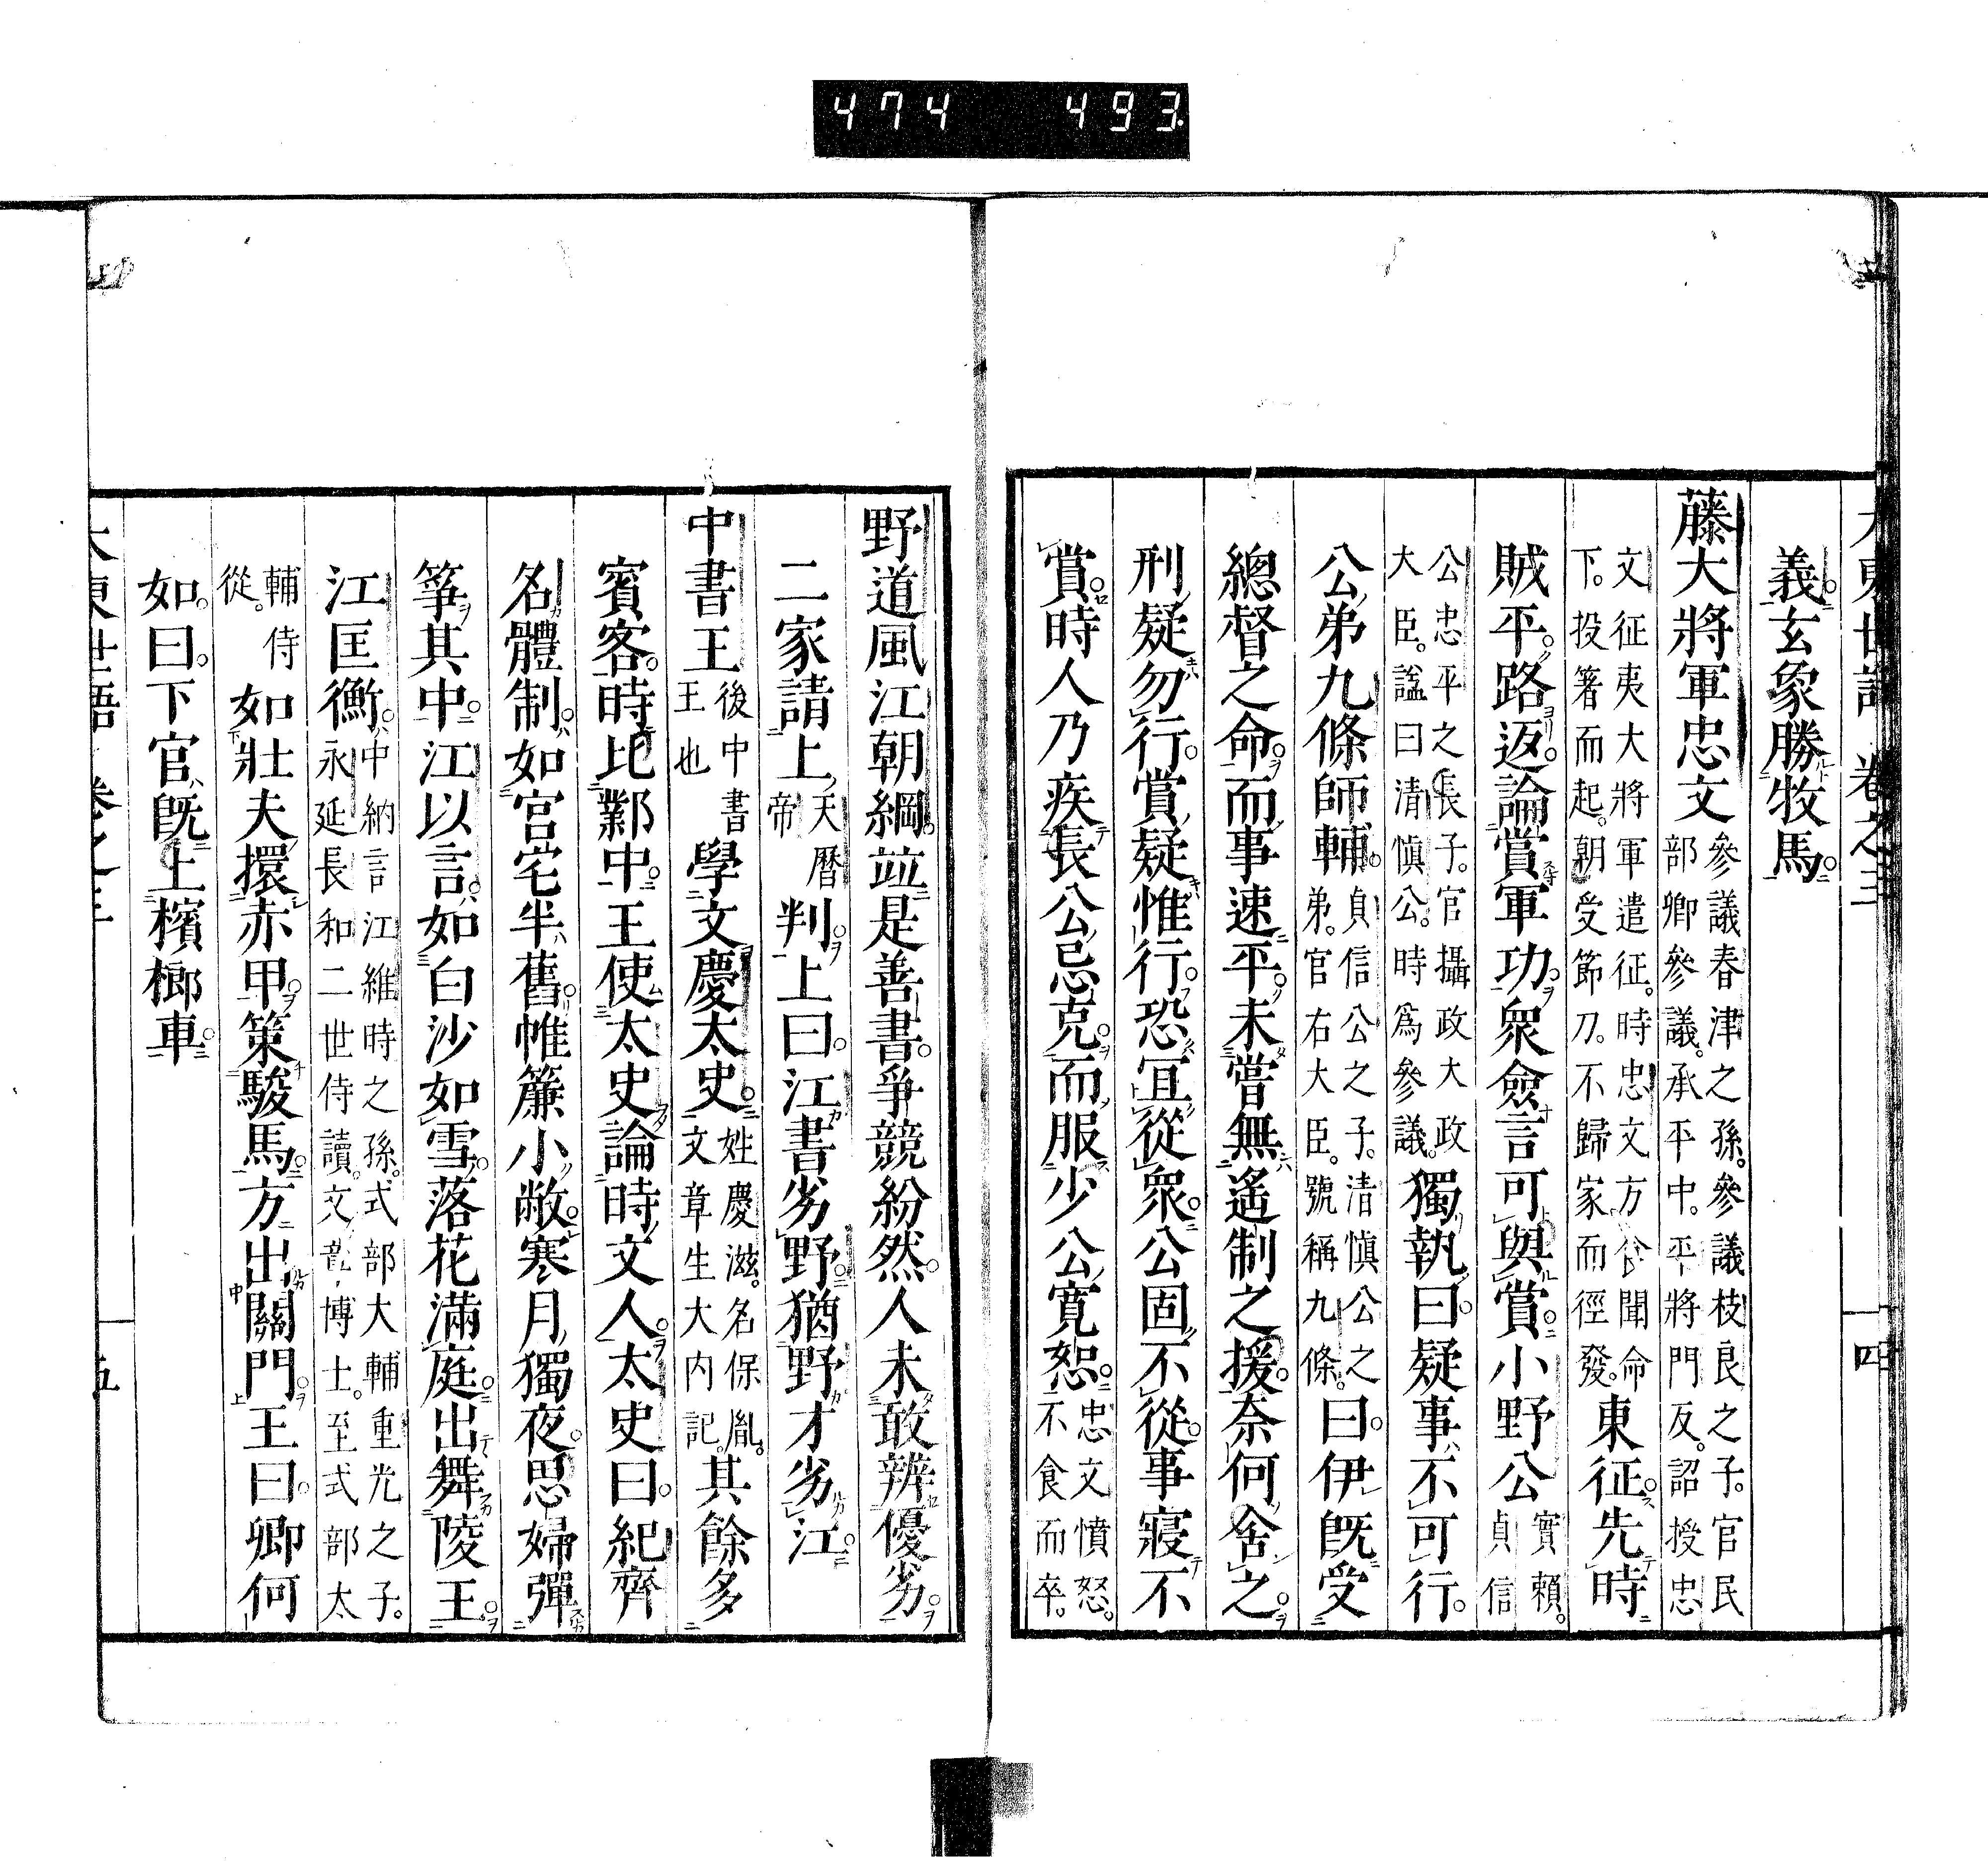 474 493
大東世語 卷之三 四
義玄象勝牧馬
藤大將軍忠文參議春津之孫參議枝良之子官民
部卿參議承平中平將門反詔授忠
文征夷大將軍遣征時忠文方食聞命
下投箸而起朝受節刀不歸家而徑發東征先時
賊平路返論賞軍功衆僉言可與賞小野公實賴貞信
公忠平之長子官攝政大政
大臣謚曰清愼公時爲參議獨執曰疑事不可行
公弟九條師輔貞信公之子清愼公之
弟官右大臣號稱九條曰伊既受
總督之命而事速平未嘗無遙制之援奈何舍之
刑疑勿行賞疑惟行恐宜從衆公固不從事寢不
賞時人乃疾長公忌克而服少公寬恕忠文憤怒
不食而卒
野道風江朝綱竝是善書爭競紛然人未敢辨優劣
二家請上天曆帝判上曰江書劣野猶野才劣江
中書王後中書王也學文慶太史姓慶滋名保胤
文章生大内記其餘多
賓客時比鄴中王使太史論時文人太史曰紀齊
名體制如宮宅半舊帷簾小敞寒月獨夜思婦彈
箏其中江以言如白沙如雪落花滿庭出舞陵王
江匡衡中納言江維時之孫式部大輔重光之子
永延長和二世侍讀文章博士至式部太
輔侍從如壯夫擐赤甲策駿馬方出關門王曰卿何
如曰下官既上檳榔車
大東世語 卷之三 五